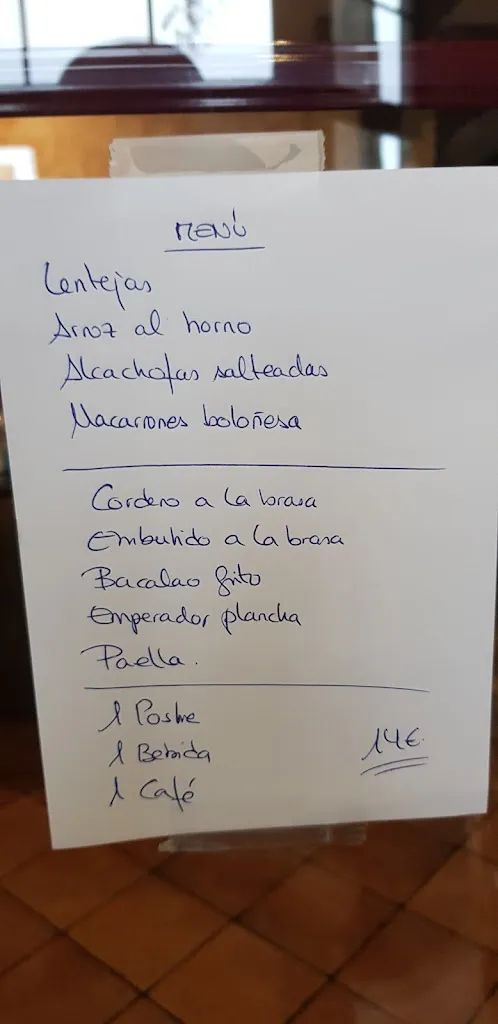 MENÚ
Lentejas
Arroz al horno
Alcachofas salteadas
Macarrones boloñesa
Cordero a la brasa
Embutido a la brasa
Bacalao frito
Emperador plancha
Paella.
1 Postre
1 Bebida
1 Café
14€.